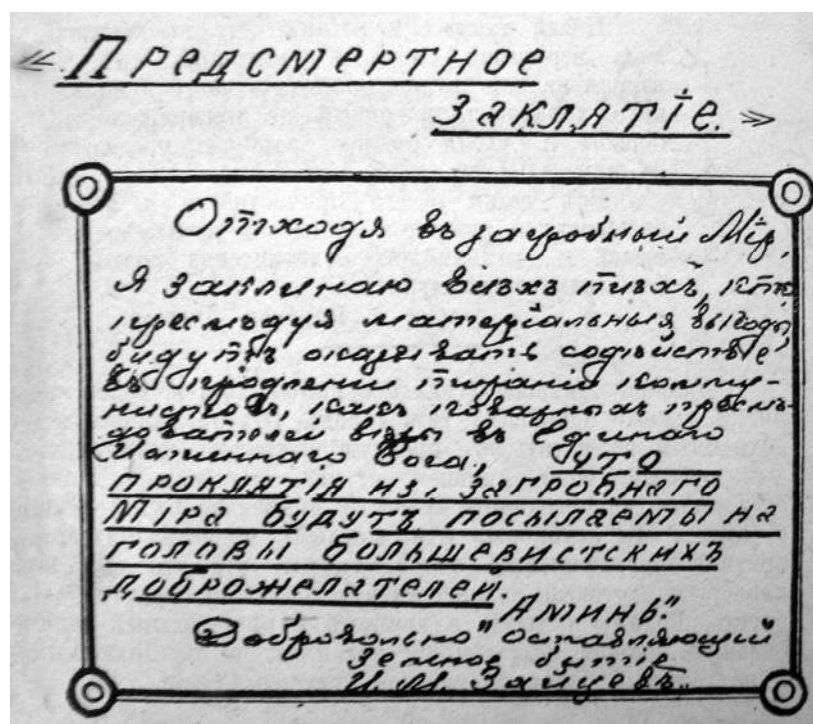 « Предсмертное
Заклятіе. »
Отходя въ загробный Мір,
Я заклинаю всѣхъ тѣхъ, кто
преслѣдуя матеріальныя выгоды,
будутъ оказывать содѣйствіе
въ продленіи тираніи комму-
нистовъ, какъ коварныхъ преслѣ-
дователей вѣры въ Единаго
Истиннаго Бога, что
проклятія из, загробнаго
Міра будутъ посылаемы на
головы большевистскихъ
доброжелателей.
"Аминь".
Добровольно "оставляющий"
земное бытіе
И. М. Зайцевъ.